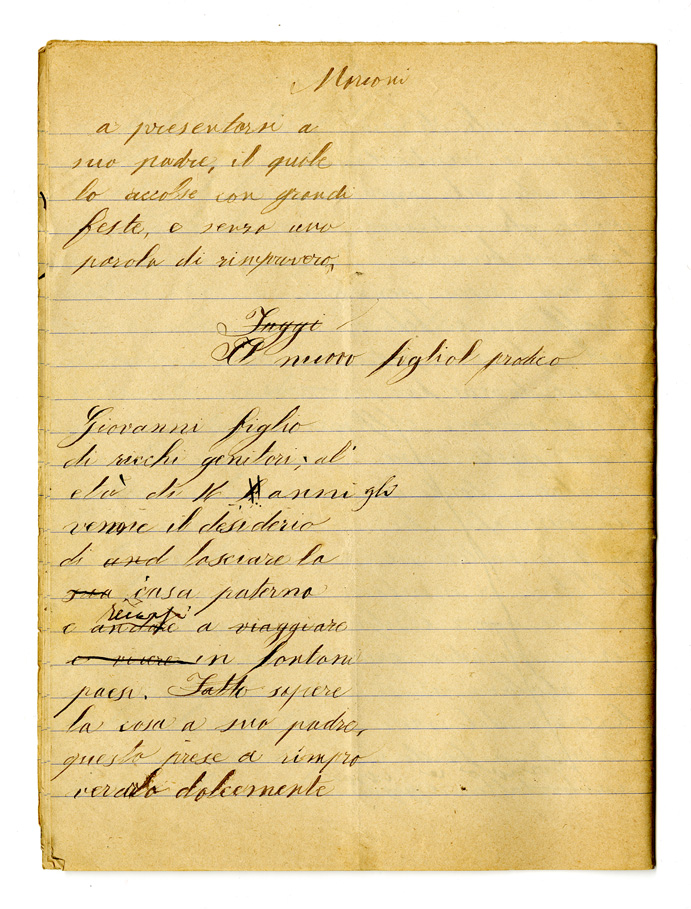 Marconi
a presentarsi a
suo padre, il quale
lo accolse con grandi
feste, e senza una
parola di rimprovero,
Il nuovo figliol prodico
Giovanni figlio
di ricchi genitori, al'
età di anni gli
venne il desiderio
di and lasciare la
sua casa paterna
e andare a viaggiare
e vivere in lontani
paesi. Fatto sapere
la cosa a suo padre,
questo prese a rimpro
verarlo dolcemente